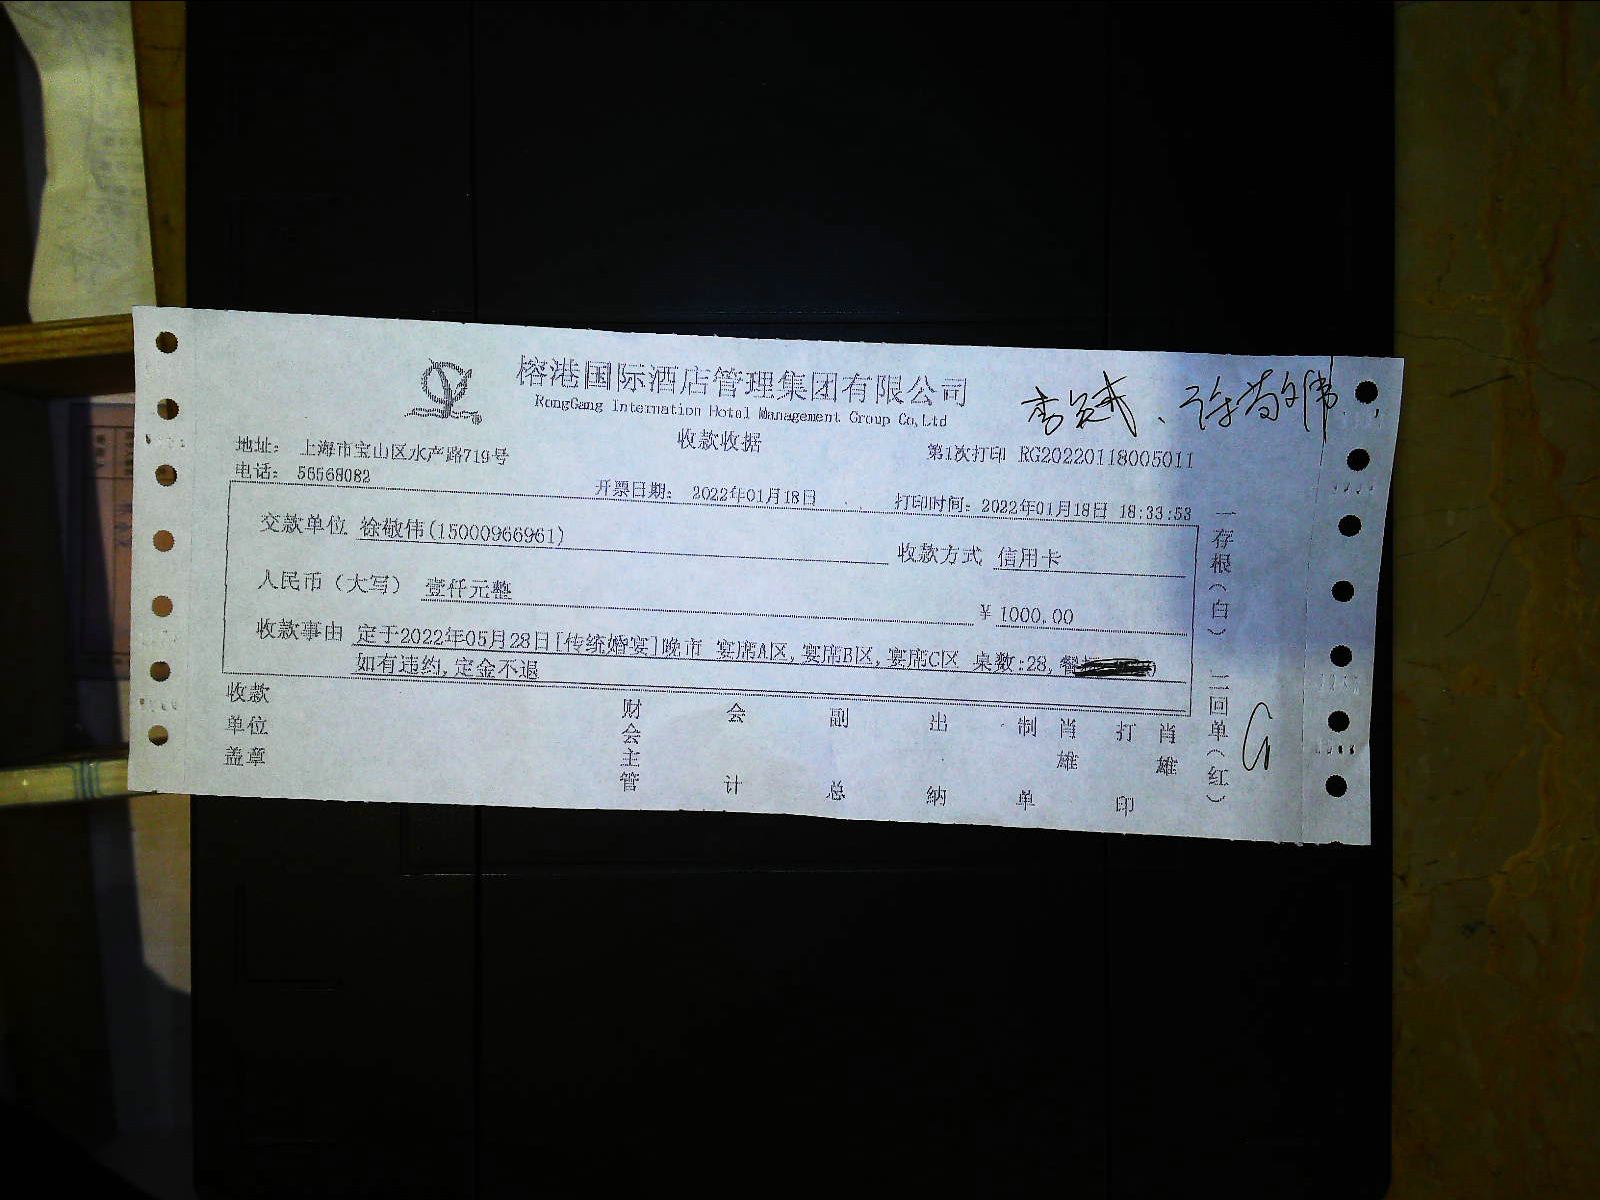 榕港国际酒店管理集团有限公司
RongGang Internation Hotel Management Group Co,Ltd
收款收据
地址： 上海市宝山区水产路719号
第1次打印 RG20220118005011
电话： 56568082
开票日期： 2022年01月18日
打印时间：2022年01月18日 18:33:53
交款单位 徐敬伟(15000966961)
收款方式 信用卡
人民币（大写） 壹仟元整
¥ 1000.00
收款事由 定于2022年05月28日[传统婚宴]晚市 宴席A区,宴席B区,宴席C区 桌数:28,
如有违约,定金不退
收款单位盖章
财会主管
会计
副总
出纳
制单
肖雄
打印
肖雄
一存根（白）
二回单（红）